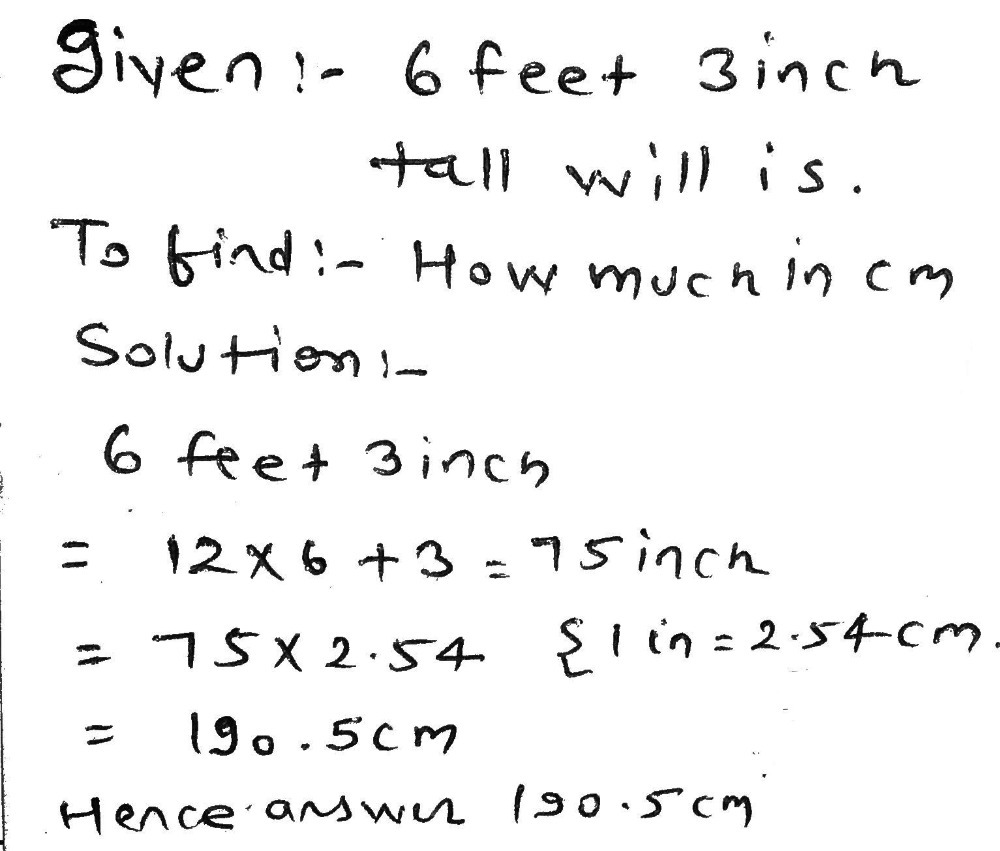 Given :- 6 feet 3 inch
tall will is.
To find :- How much in cm
Solution :-
6 feet 3 inch
= 12 x 6 + 3 = 75 inch
= 75 x 2.54 { 1 in = 2.54 cm.
= 190.5 cm
Hence answer 190.5 cm